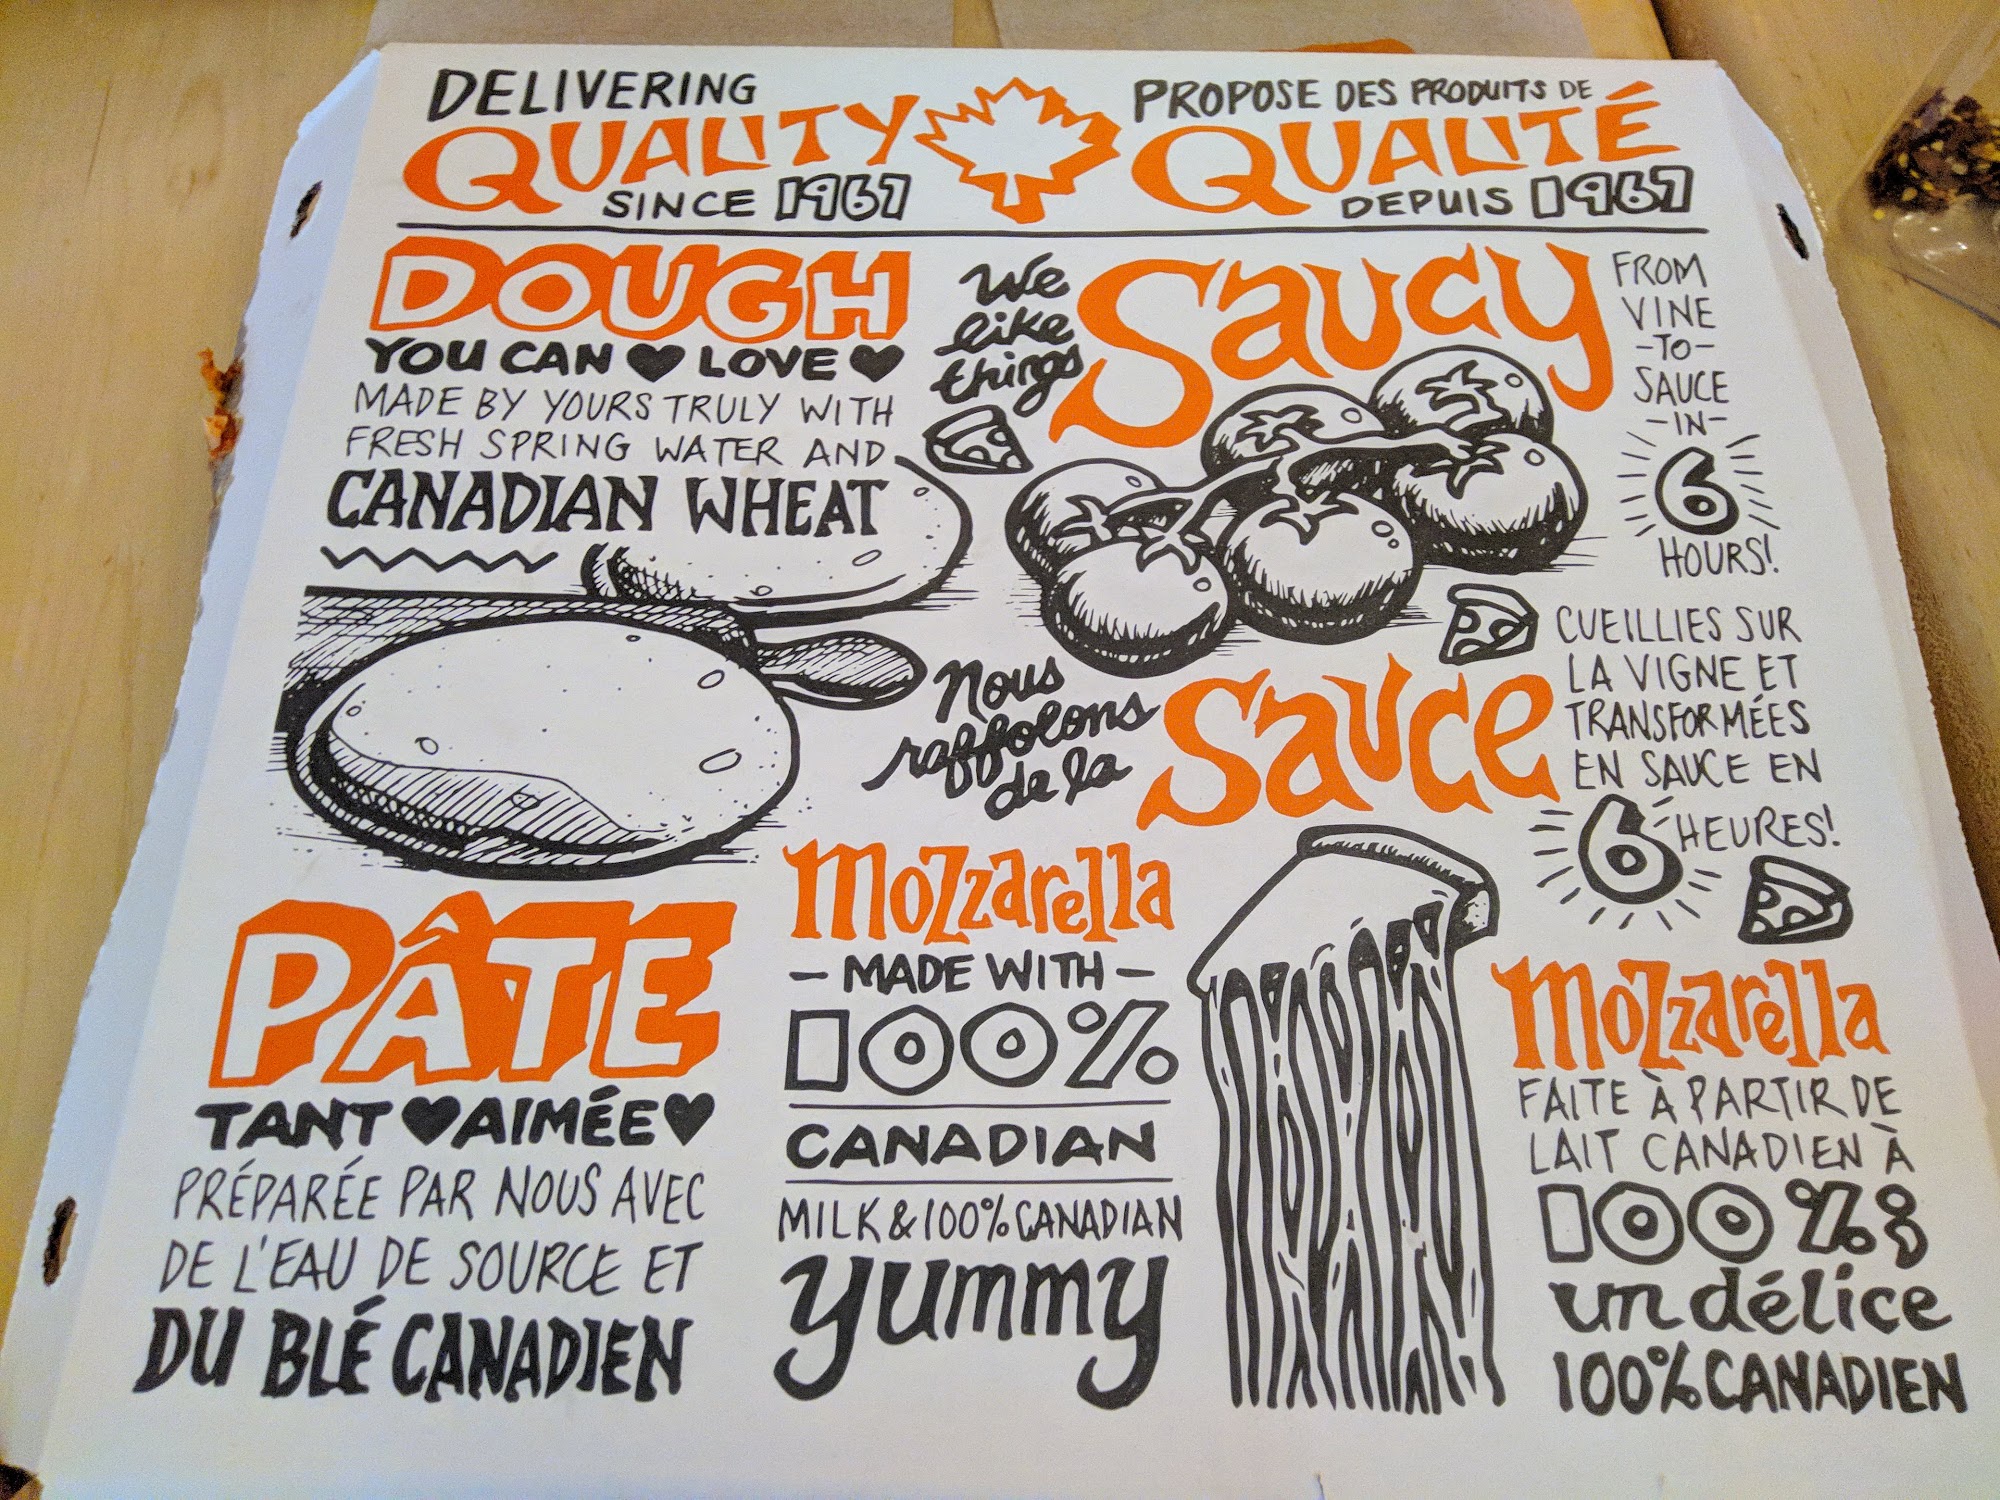 DELIVERING
QUALITY
SINCE 1967
PROPOSE DES PRODUITS DE
QUALITÉ
DEPUIS 1967
DOUGH
YOU CAN LOVE
MADE BY YOURS TRULY WITH
FRESH SPRING WATER AND
CANADIAN WHEAT
We
like
things
SAUCY
FROM
VINE
-TO-
SAUCE
-IN-
6
HOURS!
Nous
raffolons
de la
SAUCE
CUEILLIES SUR
LA VIGNE ET
TRANSFORMÉES
EN SAUCE EN
6 HEURES!
PÂTE
TANT AIMÉE
PRÉPARÉE PAR NOUS AVEC
DE L'EAU DE SOURCE ET
DU BLÉ CANADIEN
mozzarella
- MADE WITH -
100%
CANADIAN
MILK & 100% CANADIAN
yummy
mozzarella
FAITE À PARTIR DE
LAIT CANADIEN À
100% &
un délice
100% CANADIEN